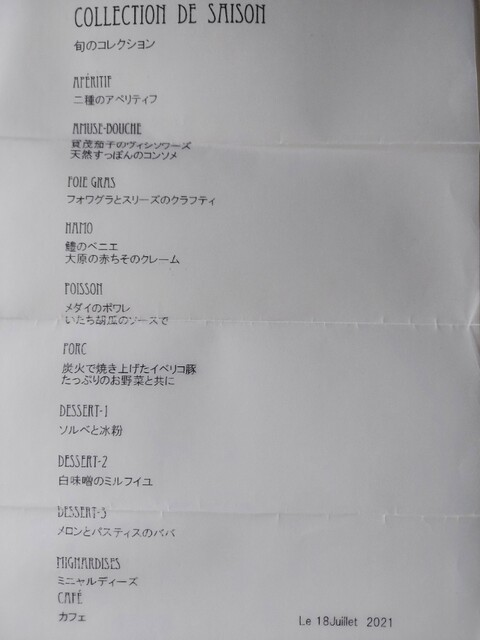 COLLECTION DE SAISON
旬のコレクション
APÉRITIF
二種のアペリティフ
AMUSE-BOUCHE
賀茂茄子のヴィシソワーズ
天然すっぽんのコンソメ
FOIE GRAS
フォワグラとスリーズのクラフティ
HAMO
鱧のベニエ
大原の赤ちそのクレーム
POISSON
メダイのポワレ
いたち胡瓜のソースで
PORC
炭火で焼き上げたイベリコ豚
たっぷりのお野菜と共に
DESSERT-1
ソルベと氷粉
DESSERT-2
白味噌のミルフイユ
DESSERT-3
メロンとパスティスのババ
MIGNARDISES
ミニャルディーズ
CAFÉ
カフェ
Le 18Juillet 2021